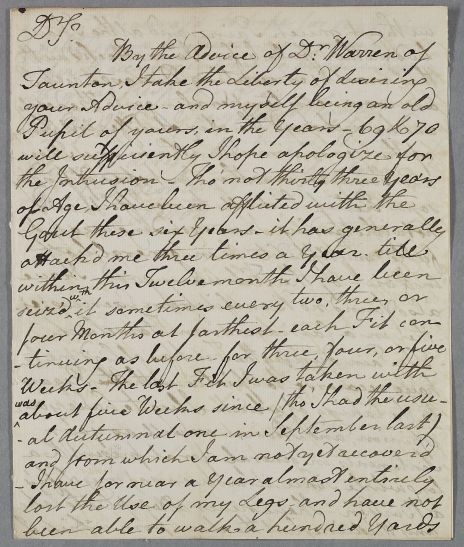 Dr Sr
By the Advice of Dr. Warren of
Taunton, I take the Liberty of desiring
your Advice - and myself being an old
Pupil of yours, in the Years - 69 & 70
will sufficiently I hope apologize for
the Intrusion - Tho not thirty three Years
of Age I have been afflicted with the
Gout these six Years - it has generally
attackd me three times a Year till
within this Twelvemonth I have been
seizd with it sometimes every two, three, or
four Months at farthest - each Fit con
- tinuing as before for three, four, or five
Weeks - The last Fit I was taken with
was about five Weeks since (tho' I had the usu
- al Autumnal one in September last)
and from which I am not yet recover'd
- I have for near a Year almost entirely
lost the Use of my Legs and have not
been able to walk a hundred Yards